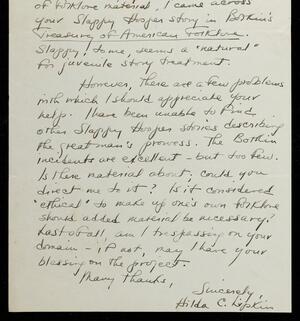 of folklore material, I came across
your Slappy Hooper story in Botkin's
Treasury of American Folklore.
Slappy, to me, seems a "natural"
for juvenile story treatment.
However, there are a few problems
with which I should appreciate your
help. I have been unable to find
other Slappy Hooper stories describing
the great man's prowess. The Botkin
incidents are excellent - but too few.
Is there material about; could you
direct me to it? Is it considered
"ethical" to make up one's own folklore
should added material be necessary?
Last of all, am I trespassing on your
domain - ; if not, may I have your
blessing on the project.
Many thanks,
Sincerely,
Hilda C. Lipkin